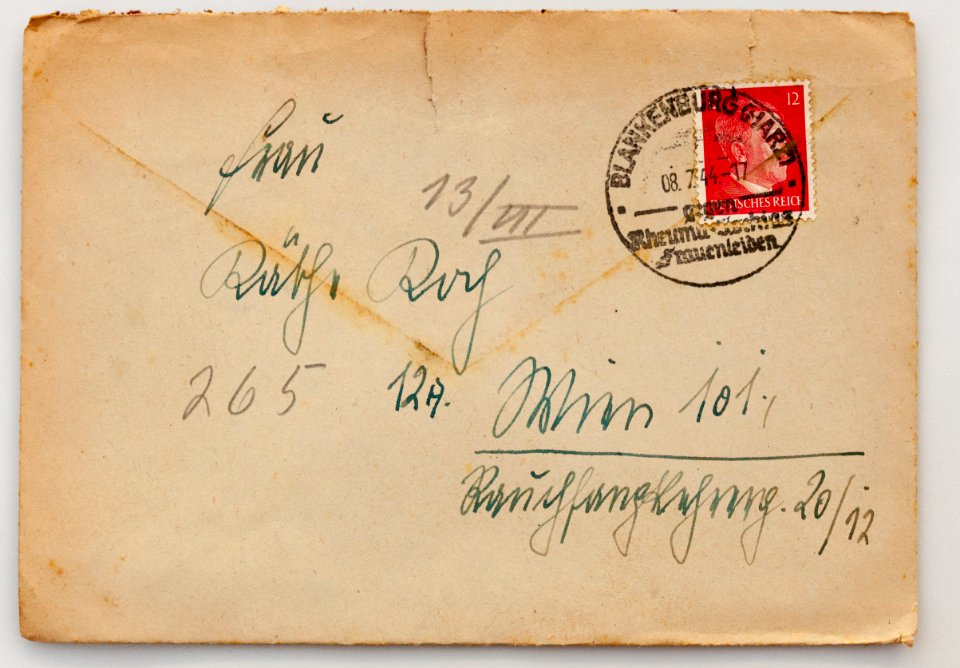 BLANKENBURG (HARZ)
12
08.7.44-17
DEUTSCHES REICH
gegen
Rheuma-Ischias
Frauenleiden
Frau
13/VIII
Käthe Koch
265
12A. Wien 101.,
Rauchfangkehrerg. 20/12